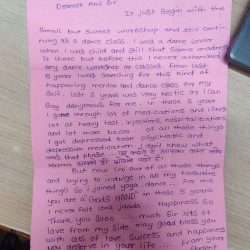 Dearest Atul Sir
It just begin with the
Small but sweet workshop and still conti-
nuing as a dance class. I was a dance lover
when I was child and still that same madness
is there but before this I never attended
any dance workshop or classes from last
5 year I was searching for this kind of
happening mentor and dance class for my
Self. last 5 years was very hectic or I can
Say dangerous, For me. In those 5 years
I gone through lot of medications and illness
lot of heavy test, injections, hospitalizations
and lot more becoz of all those things
I got depressed took psychiatrist and
depression medication, I don't know what
was that phase
But now I'm out of those things
and trying to indulge in all my favourite
things so I joined yoga, dance... For me
you are a "GODS HAND" in these 5 years
I never felt itna joada... Happiness so
Thank you Sooo ... much Sir lots of
love from my side may god bless you
with lots of love, success and happiness
you deserve in your life ... from your